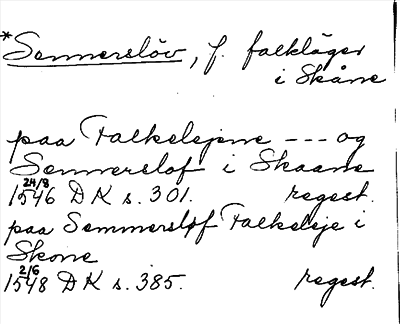 *Semmerslöv, f. falkläger
i Skåne
paa Falkelejerne --- og
Semmerslof i Skaane
24/8
1546 DK s. 301. regest.
paa Semmersløf Falkeleje i
Skone
2/6
1548 DK s. 385. regest.